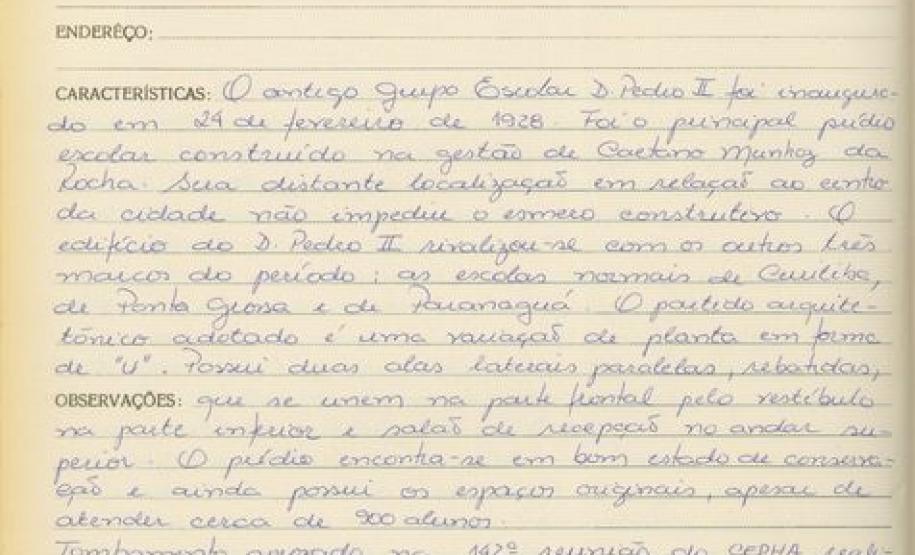 ENDERÊÇO:
CARACTERÍSTICAS: O antigo Grupo Escolar D. Pedro II foi inaugura-
do em 24 de fevereiro de 1928. Foi o principal prédio
escolar construído na gestão de Caetano Munhoz da
Rocha. Sua distante localização em relação ao centro
da cidade não impediu o esmero construtivo. O
edifício do D. Pedro II rivalizou-se com os outros três
marcos do período: as escolas normais de Curitiba,
de Ponta Grossa e de Paranaguá. O partido arquite-
tônico adotado é uma variação de planta em forma
de "U". Possui duas alas laterais paralelas, rebatidas,
OBSERVAÇÕES: que se unem na parte frontal pelo vestíbulo
na parte inferior e salão de recepção no andar su-
perior. O prédio encontra-se em bom estado de conserva-
ção e ainda possui os espaços originais, apesar de
atender cerca de 900 alunos.
Tombamento aprovado na 147ª reunião do CEPHA reali-